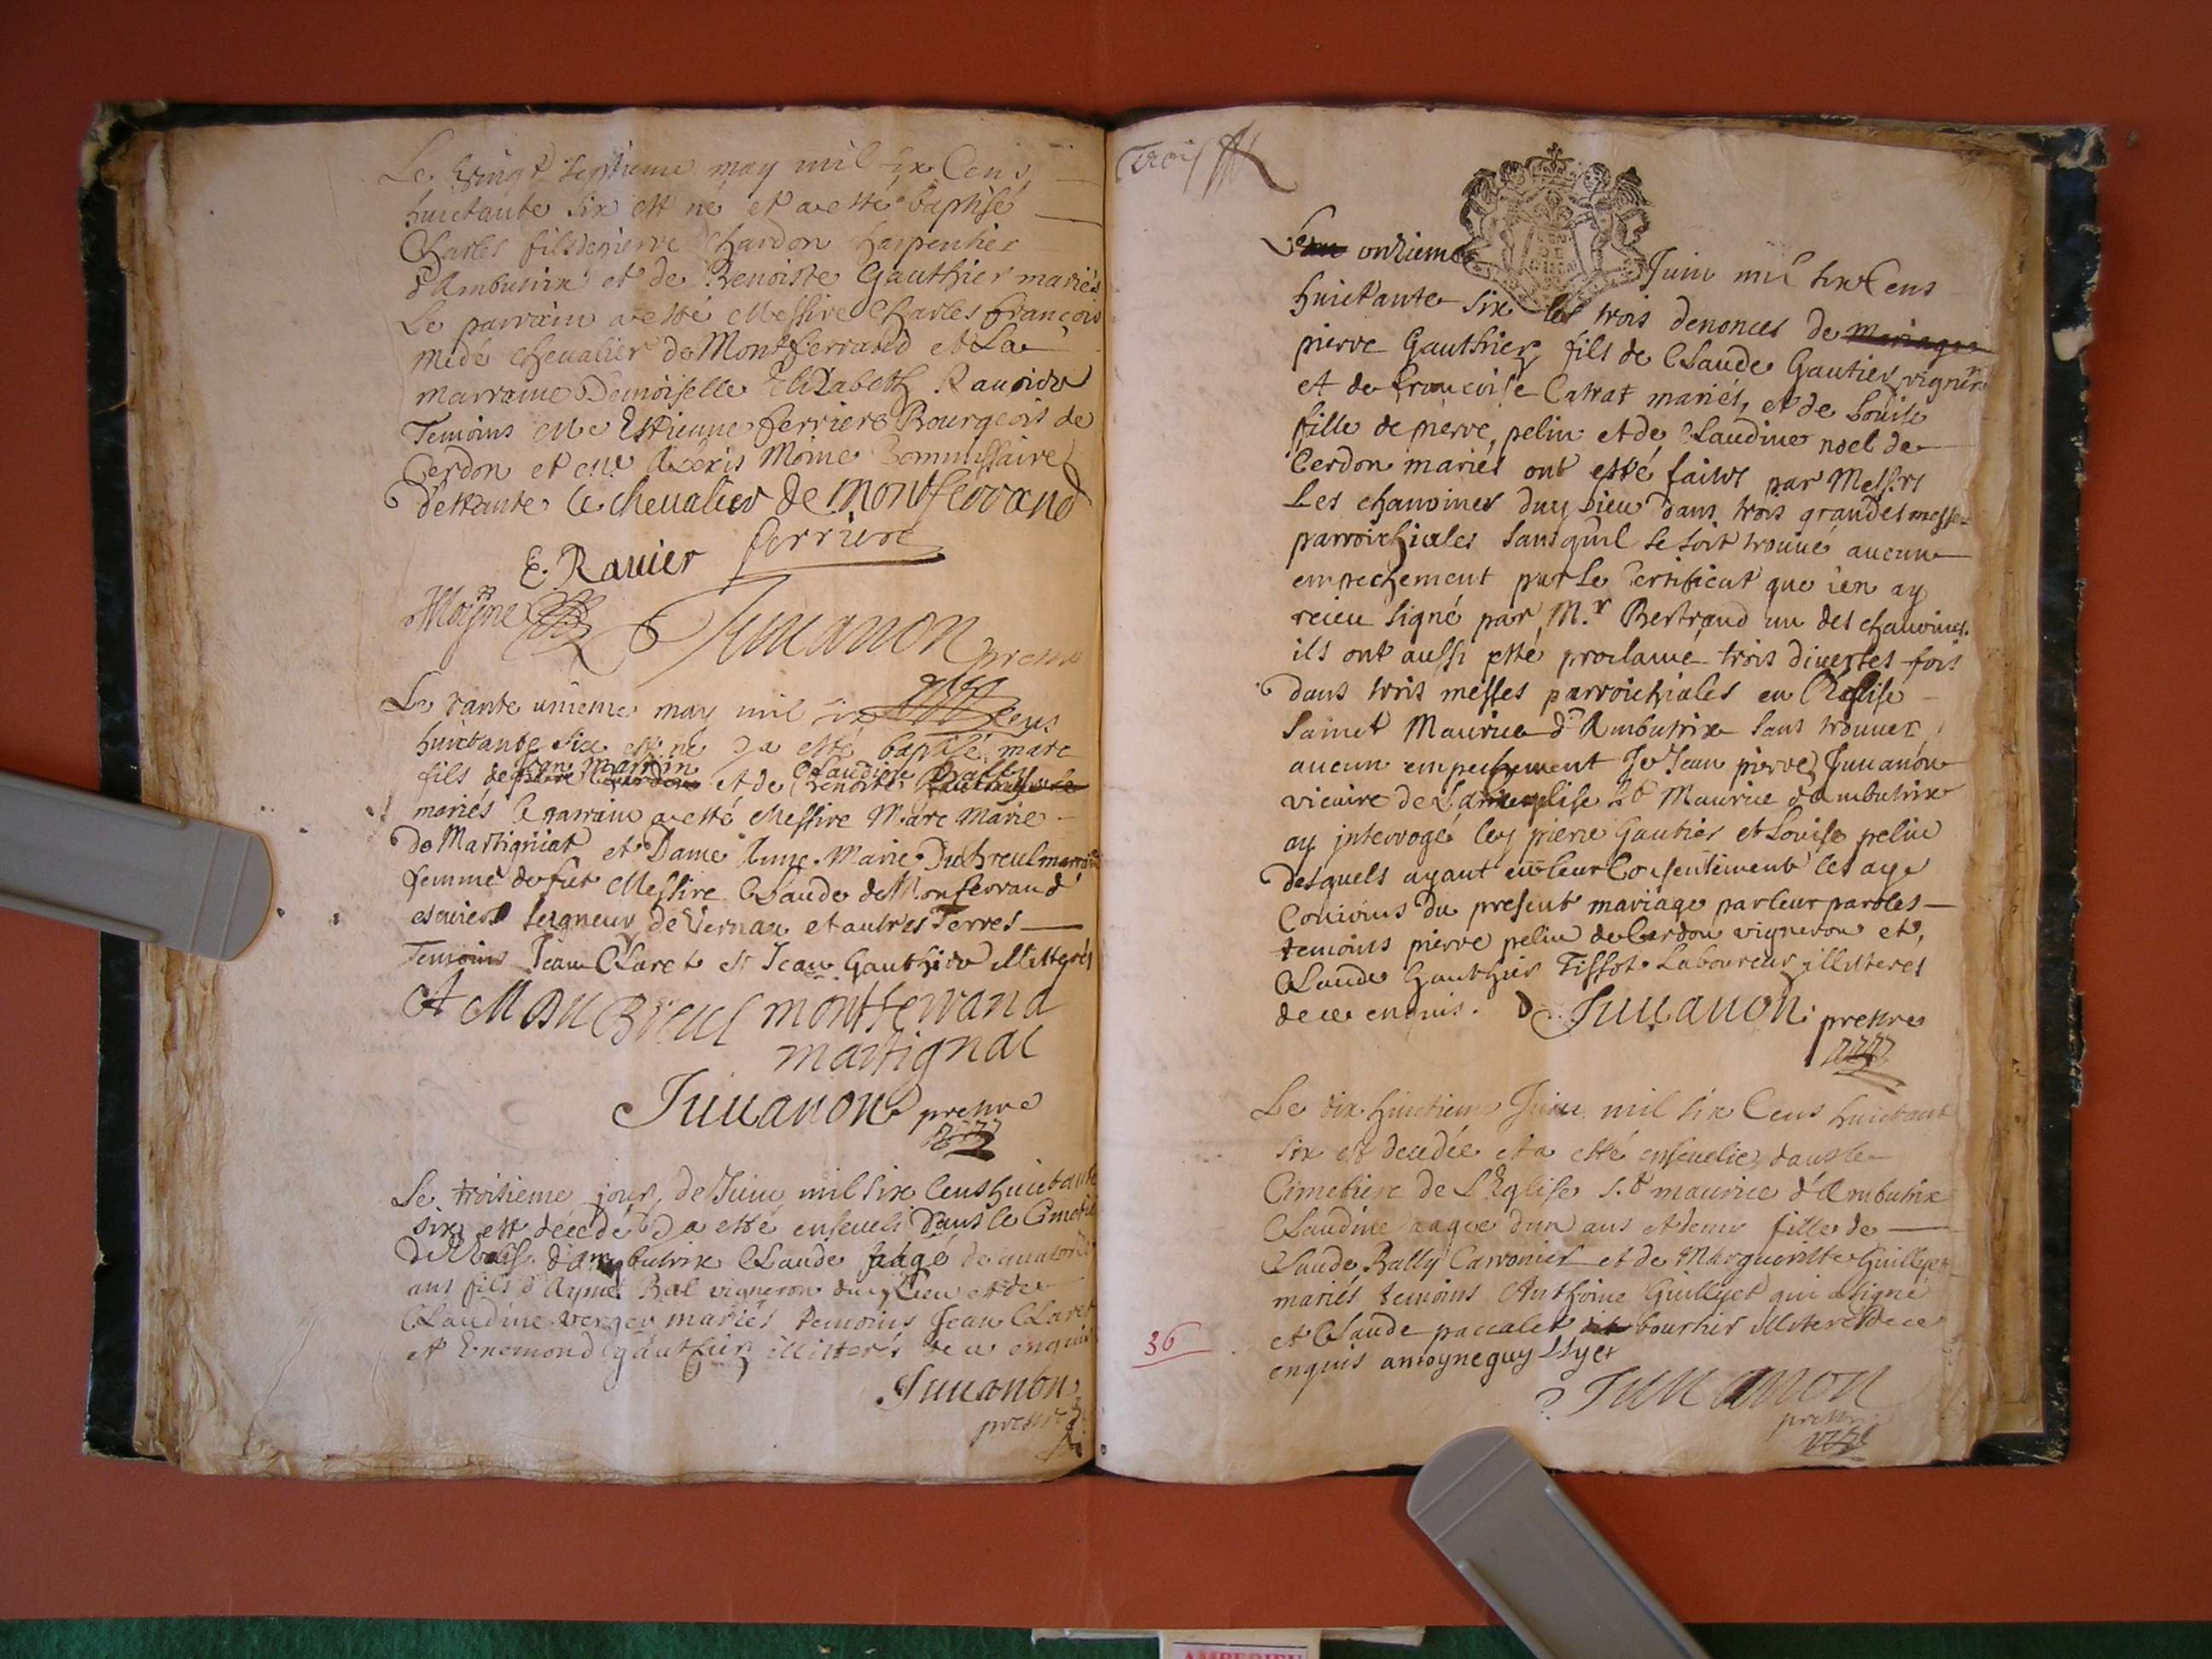 Le vingt septieme may mil six Cens
huictante six est né et a esté baptisé
Charles fils de pierre Chardon charpentier
d'Ambutrix et de Benoiste Gauthier mariés
Le parrain a esté Messire Charles françois
chevalier de Montferrand et La
marraine Demoiselle Elizabeth Ravier
Temoins Me Estienne ferriere Bourgeois de
Cerdon et Me Alexis Moine Commissaire
le chevalier de montferrand
E. Ravier ferriere
Moyne Juuanon prestre
Le trante unieme may mil six Cens
huictante six est né & a esté baptisé marc
fils de Jean martin et de Claudine Bally
mariés le parrain a esté Messire Marc Marie
de Martigniat et Dame Anne Marie Dubreul marraine
femme de fut Messire Claude de Monferrand
escuier seigneur de Vernau et autres Terres
Temoins Jean Claret et Jean Gauthier illitterés
A M Du Breul montferrand
martignat
Juuanon prestre
Le troisieme jour de Juin mil six Cens huictante
six est décedé & a esté enseveli dans le Cimetie
de l'Eglise d'ambutrix Claude aagé de quatorze
ans fils d'Aymé Bal vigneron dudit Lieu et de
Claudine verger mariés temoins Jean Claret
et Enemond gauthier illitterés de ce enquis
Juuanon
prestre
Trois
Le onzieme Juin mil six Cens
huictante six les trois denonces de mariage
pierre Gauthier fils de Claude Gautier vigneron
et de françoise mariés, et de Louise
fille de pierre pelin et de Claudine noel de
Cerdon mariés ont esté faites par Messrs
Les chanoines dudit Lieu dans trois grandes messes
parroichiales sans qu'il se soit trouvé aucun
empechement par le Certificat que i'en ay
receu signé par Mr Bertrand un des chanoines.
ils ont aussi esté proclamé trois diverses fois
dans trois messes parroichiales en l'Eglise
sainct Maurice d'Ambutrix sans trouver
aucun empechement Je Jean pierre Juuanon
vicaire de L'eglise St Maurice d'ambutrix
ay interrogé les pierre Gautier et Louise pelin
desquels ayant eu leur Consentement les ay
Conioins du present mariage par leur paroles
temoins pierre pelin de Cerdon vigneron et,
Claude Gauthier Tissot Laboureur illiterés
de ce enquis. Juuanon prestre
Le dix huictieme Juin mil six Cens huictante
six est decedée et a esté ensevelie dans le
Cimetiere de L'Eglise St maurice d'Ambutrix
Claudine aagée d'un ans et demi fille de
Claude Bally Carronier et de Marguerite Guillyet
mariés temoins Anthoine Guillyet qui a signé
et Claude paccalet dit bourhis illiteré de ce
enquis antoyne guyllyet
36
Juuanon
prestre